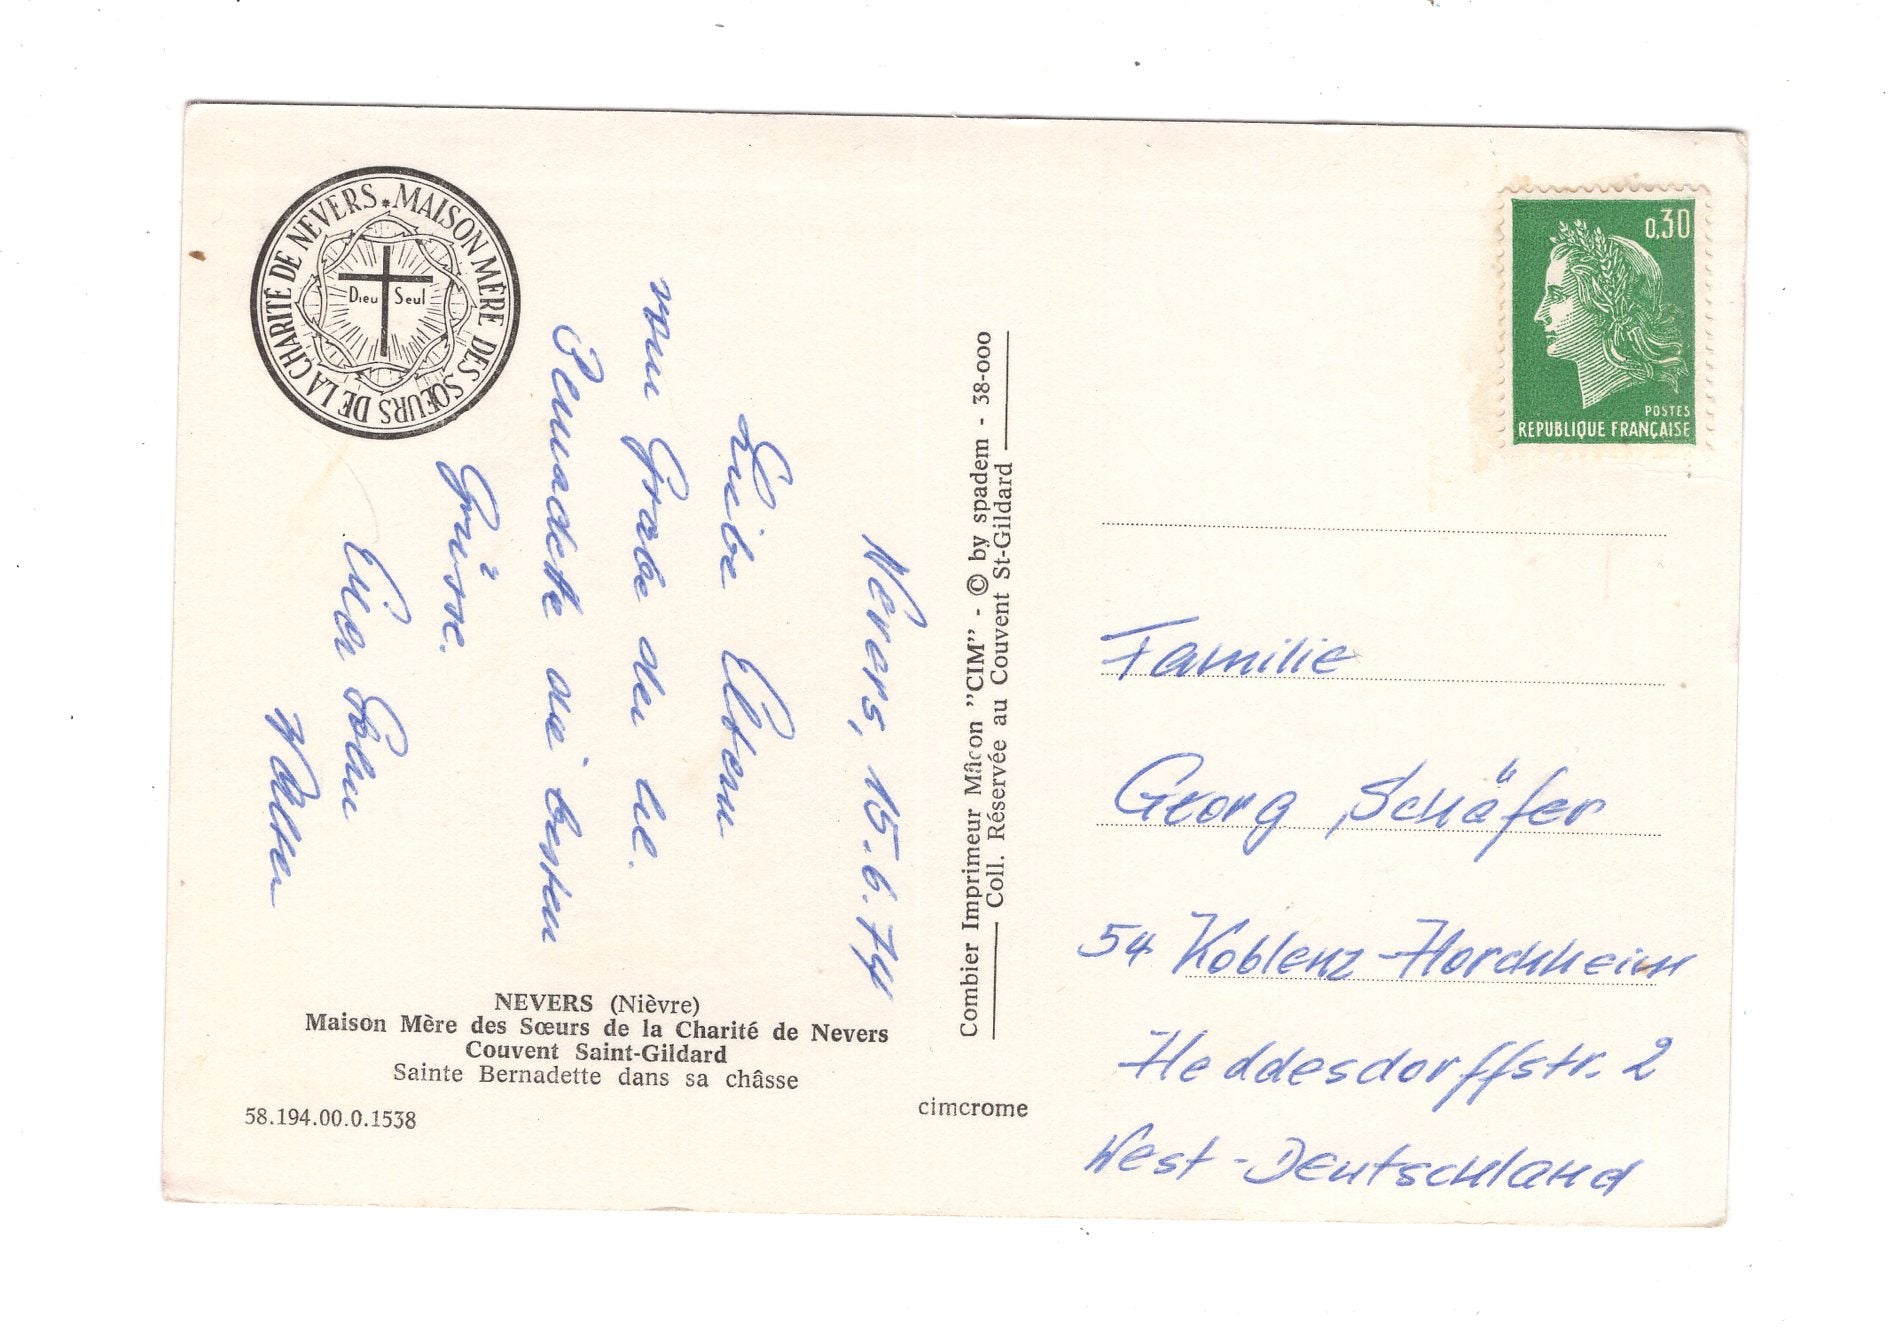 MAISON MÈRE DES SŒURS DE LA CHARITÉ DE NEVERS *
Dieu Seul
Nevers, 15.6.74
Liebe Eltern
vom Grabe der hl.
Bernadette die besten
Grüsse.
Euer Sohn
Walter
NEVERS (Nièvre)
Maison Mère des Sœurs de la Charité de Nevers
Couvent Saint-Gildard
Sainte Bernadette dans sa châsse
58.194.00.0.1538
cimcrome
Combier Imprimeur Mâcon "CIM" - © by spadem - 38-000
Coll. Réservée au Couvent St-Gildard
0,30
POSTES
REPUBLIQUE FRANÇAISE
Familie
Georg Schäfer
54 Koblenz-Horchheim
Heddesdorffstr. 2
West-Deutschland